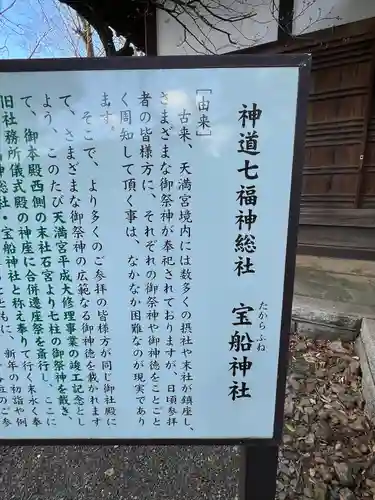 神道七福神総社　宝船神社
たからぶね
［由来］
古来、天満宮境内には数多くの摂社や末社が鎮座し、
さまざまな御祭神が奉祀されておりますが、日頃参拝
者の皆様方に、それぞれの御祭神や御神徳をことごと
く周知して頂く事は、なかなか困難なのが現実であり
ます。
そこで、より多くのご参拝の皆様方が同じ御社殿に
て、さまざまな御祭神の広範なる御神徳を戴かれます
よう、このたび天満宮平成大修理事業の竣工記念とし
て、御本殿西側の末社石宮より七柱の御祭神を戴き、
旧社務所儀式殿の神座に合併遷座祭を斎行し、ここに
神総社・宝船神社と称え奉りて行く末永く奉
とともに、新年の初詣や例